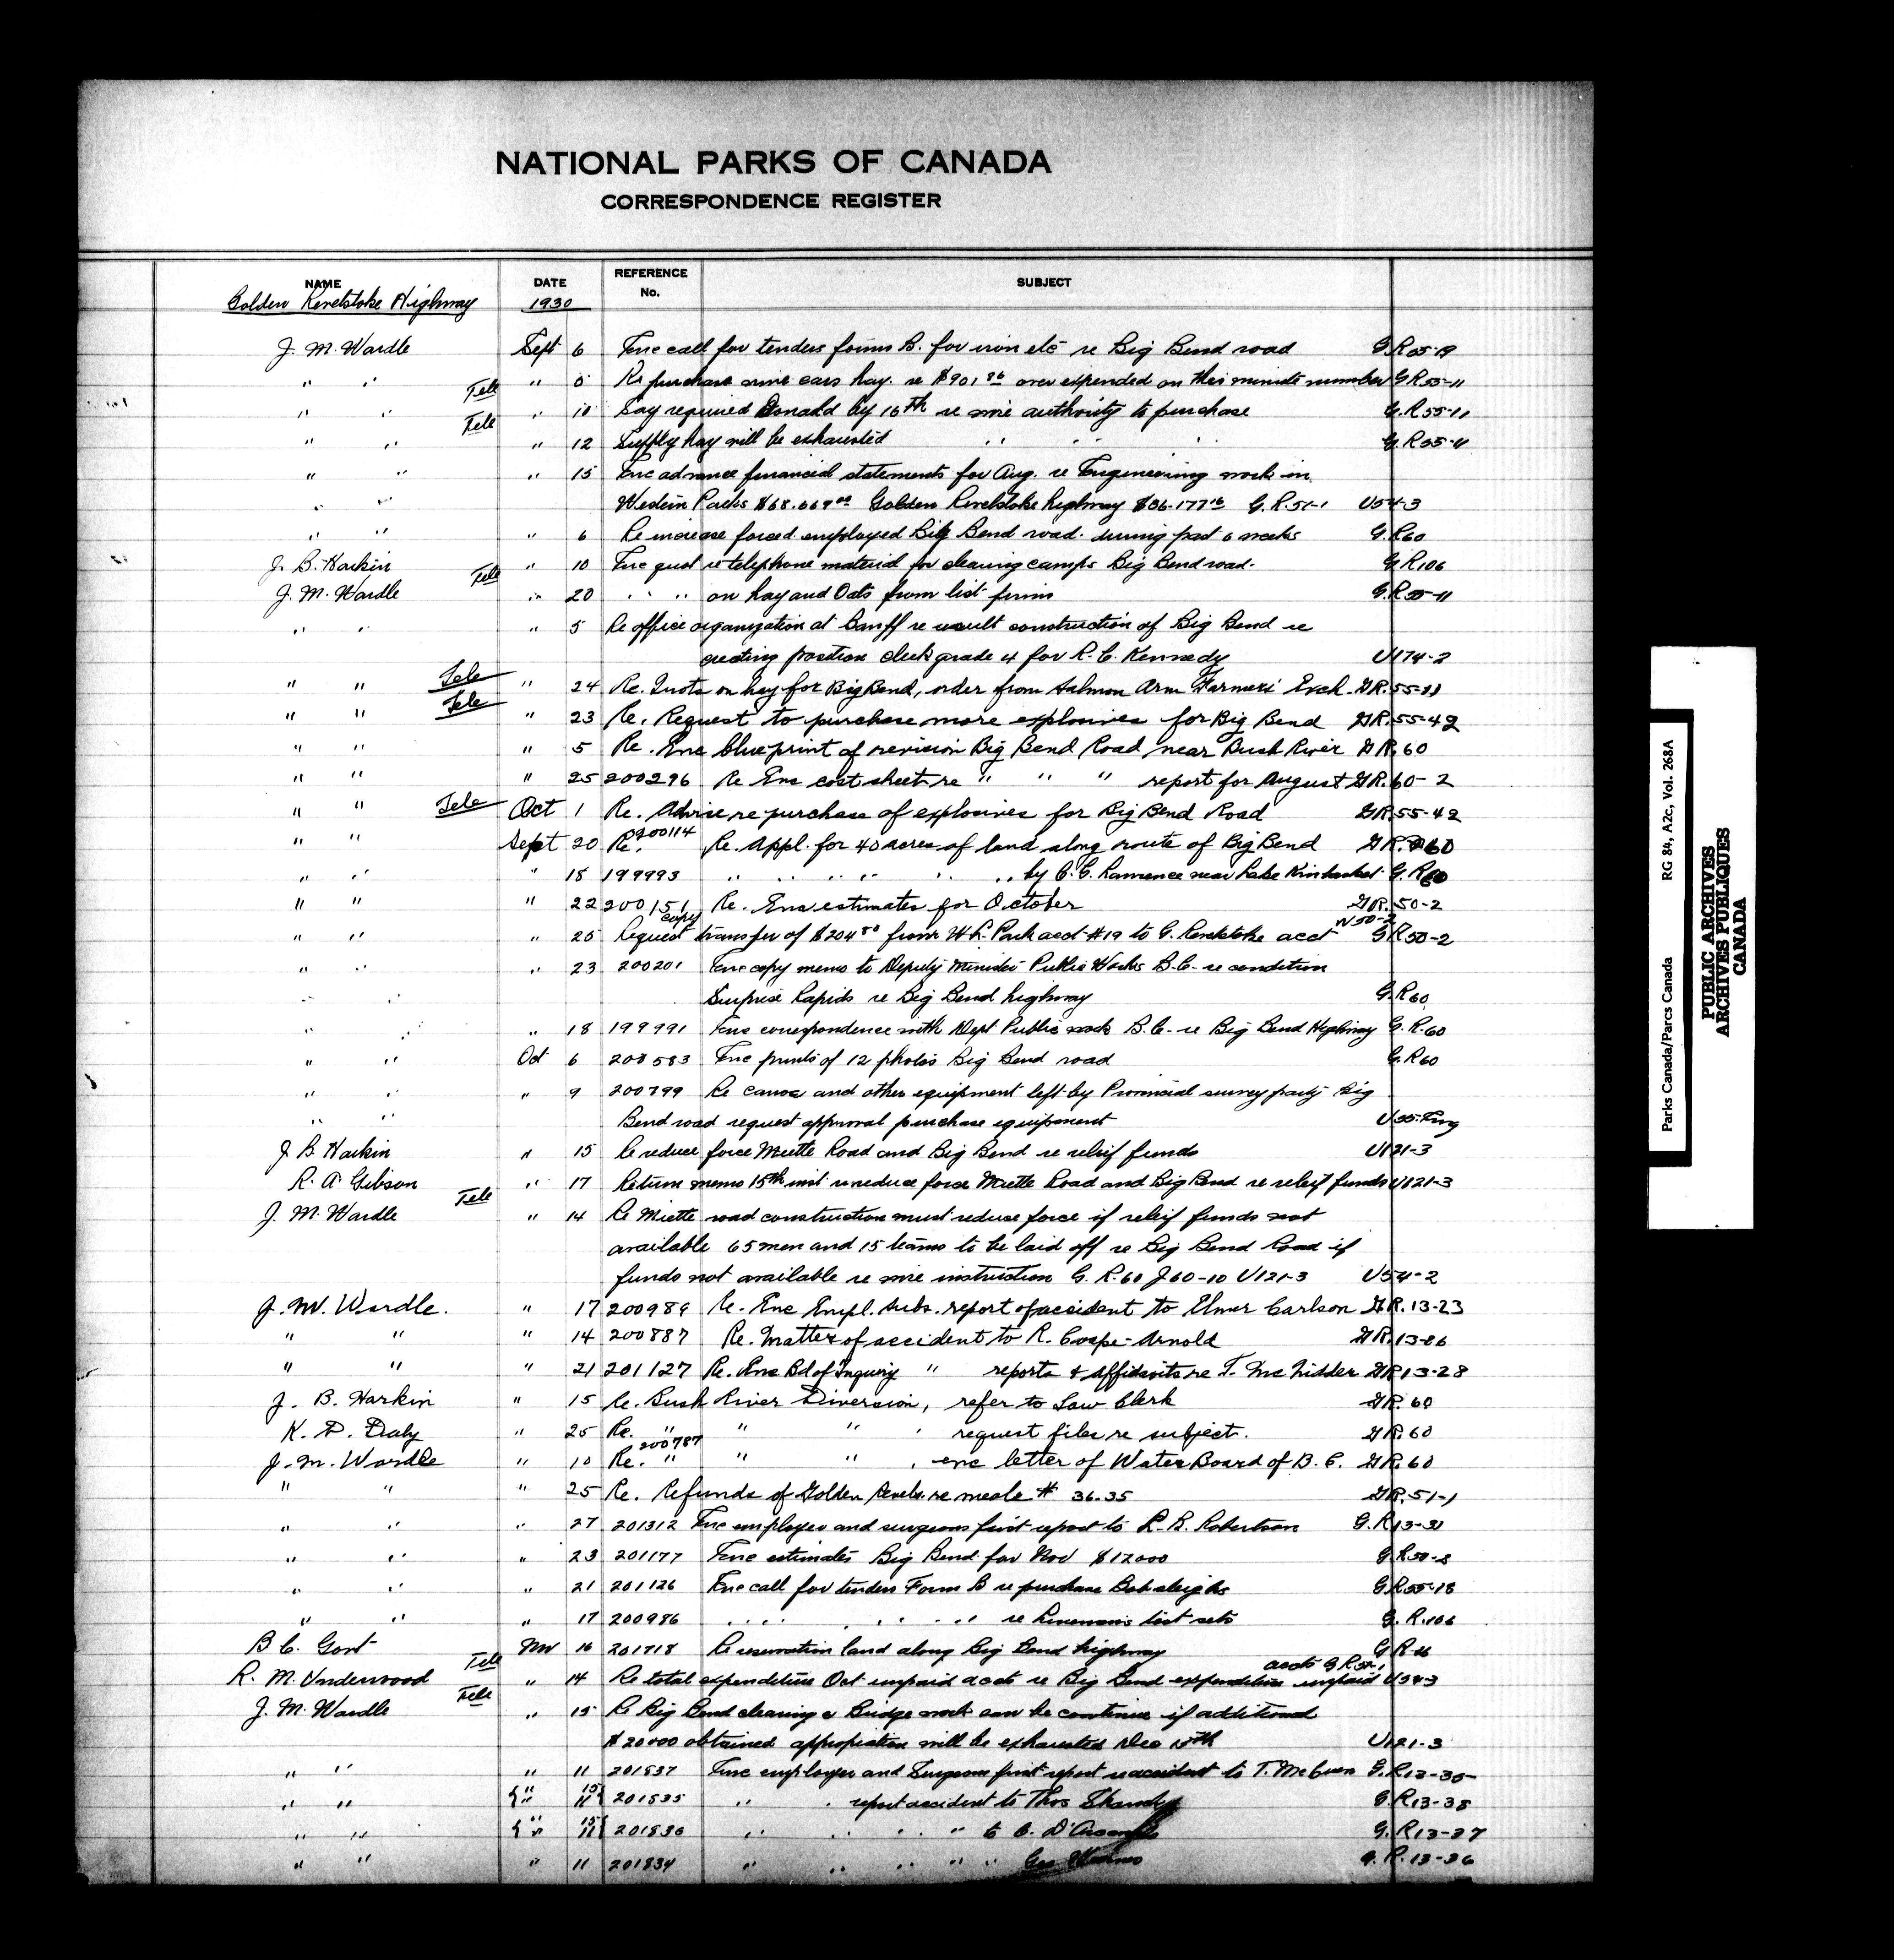 NATIONAL PARKS OF CANADA
CORRESPONDENCE REGISTER
NAME DATE REFERENCE No. SUBJECT
Golden Revelstoke Highway 1930
J. M. Wardle Sept 6 Enc call for tenders forms B. for iron etc re Big Bend road G.R.55-19
" " Tele " 5 Re purchase nine cars hay. re $901.86 over expended on this minute number G.R.55-11
" " Tele " 10 Say required Donald by 16th re wire authority to purchase G.R.55-11
" " " 12 Supply hay will be exhausted " " " G.R.55-11
" " " 15 Enc advance financial statements for Aug. re Engineering work in
" " Western Parks $68.669.00 Golden Revelstoke highway $36.177.16 G.R.51-1 U54-3
" " " 6 Re increase forced employed Big Bend road. during past 6 weeks G.R.60
J. B. Harkin " 10 Enc quot re telephone material for clearing camps Big Bend road. G.R.106
J. M. Wardle Tele " 20 " " on hay and Oats from list firms G.R.55-11
" " " 5 Re office organization at Banff re result construction of Big Bend re
creating position clerk grade 4 for R. C. Kennedy U174-2
" " Tele " 24 Re. Quots on hay for Big Bend, order from Salmon Arm Farmers' Exch. G.R.55-11
" " Tele " 23 Re. Request to purchase more explosives for Big Bend G.R.55-42
" " " 5 Re. Enc blueprint of revision Big Bend Road near Bush River G.R.60
" " " 25 200296 Re Enc cost sheet re " " " report for August G.R.60-2
" " Tele Oct 1 Re. Advise re purchase of explosives for Big Bend Road G.R.55-42
" " Sept 20 Re. 200114 Re. Appl. for 40 acres of land along route of Big Bend G.R.60
" " " 18 199993 " " " " " " by C. C. Lawrence near Lake Kinbasket G.R.60
" " " 22 200151 Re. Enc estimates for October G.R.50-2
" " " 25 Request copy transfer of $204.80 from W.L. Park acct #19 to G. Revelstoke acct W50-2 G.R.50-2
" " " 23 200201 Enc copy memo to Deputy Minister Public Works B.C. re condition
" " Surprise Rapids re Big Bend highway G.R.60
" " " 18 199991 Enc correspondence with Dept Public works B.C. re Big Bend Highway G.R.60
" " Oct 6 200583 Enc prints of 12 photos Big Bend road G.R.60
" " " 9 200799 Re canoe and other equipment left by Provincial survey party Big
" " Bend road request approval purchase equipment U55-Eng
J B Harkin " 15 Re reduce force Miette Road and Big Bend re releif funds U121-3
R. A. Gibson " 17 Return memo 15th inst re reduce force Miette Road and Big Bend re releif funds U121-3
J. M. Wardle Tele " 14 Re Miette road construction must reduce force if releif funds not
available 65 men and 15 teams to be laid off re Big Bend Road if
funds not available re wire instruction G.R.60 J60-10 U121-3 U54-2
J. M. Wardle. " 17 200989 Re. Enc Empl. Subs. report of accident to Elmer Carlson G.R.13-23
" " " 14 200887 Re. Matter of accident to R. Coape-Arnold G.R.13-26
" " " 21 201127 Re. Enc Bd of Inquiry " reports & Affidavits re T. McNidder G.R.13-28
J. B. Harkin " 15 Re. Bush River Diversion, refer to Law Clerk G.R.60
K. D. Daly " 25 Re. " " " request files re subject. G.R.60
J. M. Wardle " 10 Re. 200787 " " " , enc letter of Water Board of B.C. G.R.60
" " " 25 Re. Refunds of Golden Revels. re meals # 36.35 G.R.51-1
" " " 27 201312 Enc employer and surgeons first report to L. R. Robertson G.R.13-31
" " " 23 201177 Enc estimates Big Bend for Nov $12000 G.R.50-2
" " " 21 201126 Enc call for tenders Form B re purchase Bobsleighs G.R.55-18
" " " 17 200986 " " " " " re Linemans test sets G.R.106
B C. Govt Nov 16 201718 Re reservation land along Big Bend highway G.R.16
R. M. Underwood Tele " 14 Re total expenditure Oct unpaid accts re Big Bend expenditure unpaid accts G.R.51-1 U54-3
J. M. Wardle Tele " 15 Re Big Bend clearing & Bridge work can be continue if additional
$20000 obtained appropriation will be exhausted Dec 15th U121-3
" " " 11 201837 Enc employer and Surgeons first report re accident to T. McEwen G.R.13-35
" " " 15 11 201835 " " report accident to Thos G.R.13-38
" " " 15 11 201836 " " " " to G.R.13-37
" " " 11 201834 " " " " Geo G.R.13-36
Parks Canada/Parcs Canada RG 84, A2c, Vol. 268A
PUBLIC ARCHIVES
ARCHIVES PUBLIQUES
CANADA